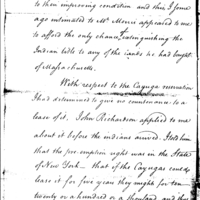 to their improving condition and this I some
ago intimated to Mr. Morris appeared to me
to afford the only chance of extinguishing the
Indian title to any of the lands he had bought
of Massachusetts.
With respect to the Cayuga reservation
I had determined to give no countenance to a
lease of it. John Richardson applied to me
about it before the indians arrived. I told him
that the pre-emption right was in the State
of New York — that if the Cayugas could
lease it for five years they might for ten
twenty or a hundred or a thousand and thus